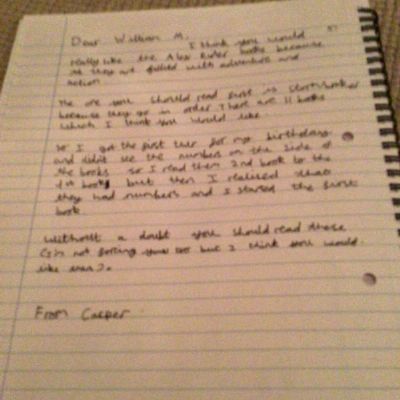 Dear William M.
I think you would
really like the Alex Rider books because
they are filled with adventure and
action
The one you should read first is stormbreaker
because they go in order There are 11 books
which I think you would like.
So I got the first two for my birthday
and didn't see the numbers on the side of
the books so I read them 2nd book to the
1st book but then I realised that
they had numbers and I started the first
book
Without a doubt you should read these
(I'm not forcing you but I think you would
like them).
From Casper